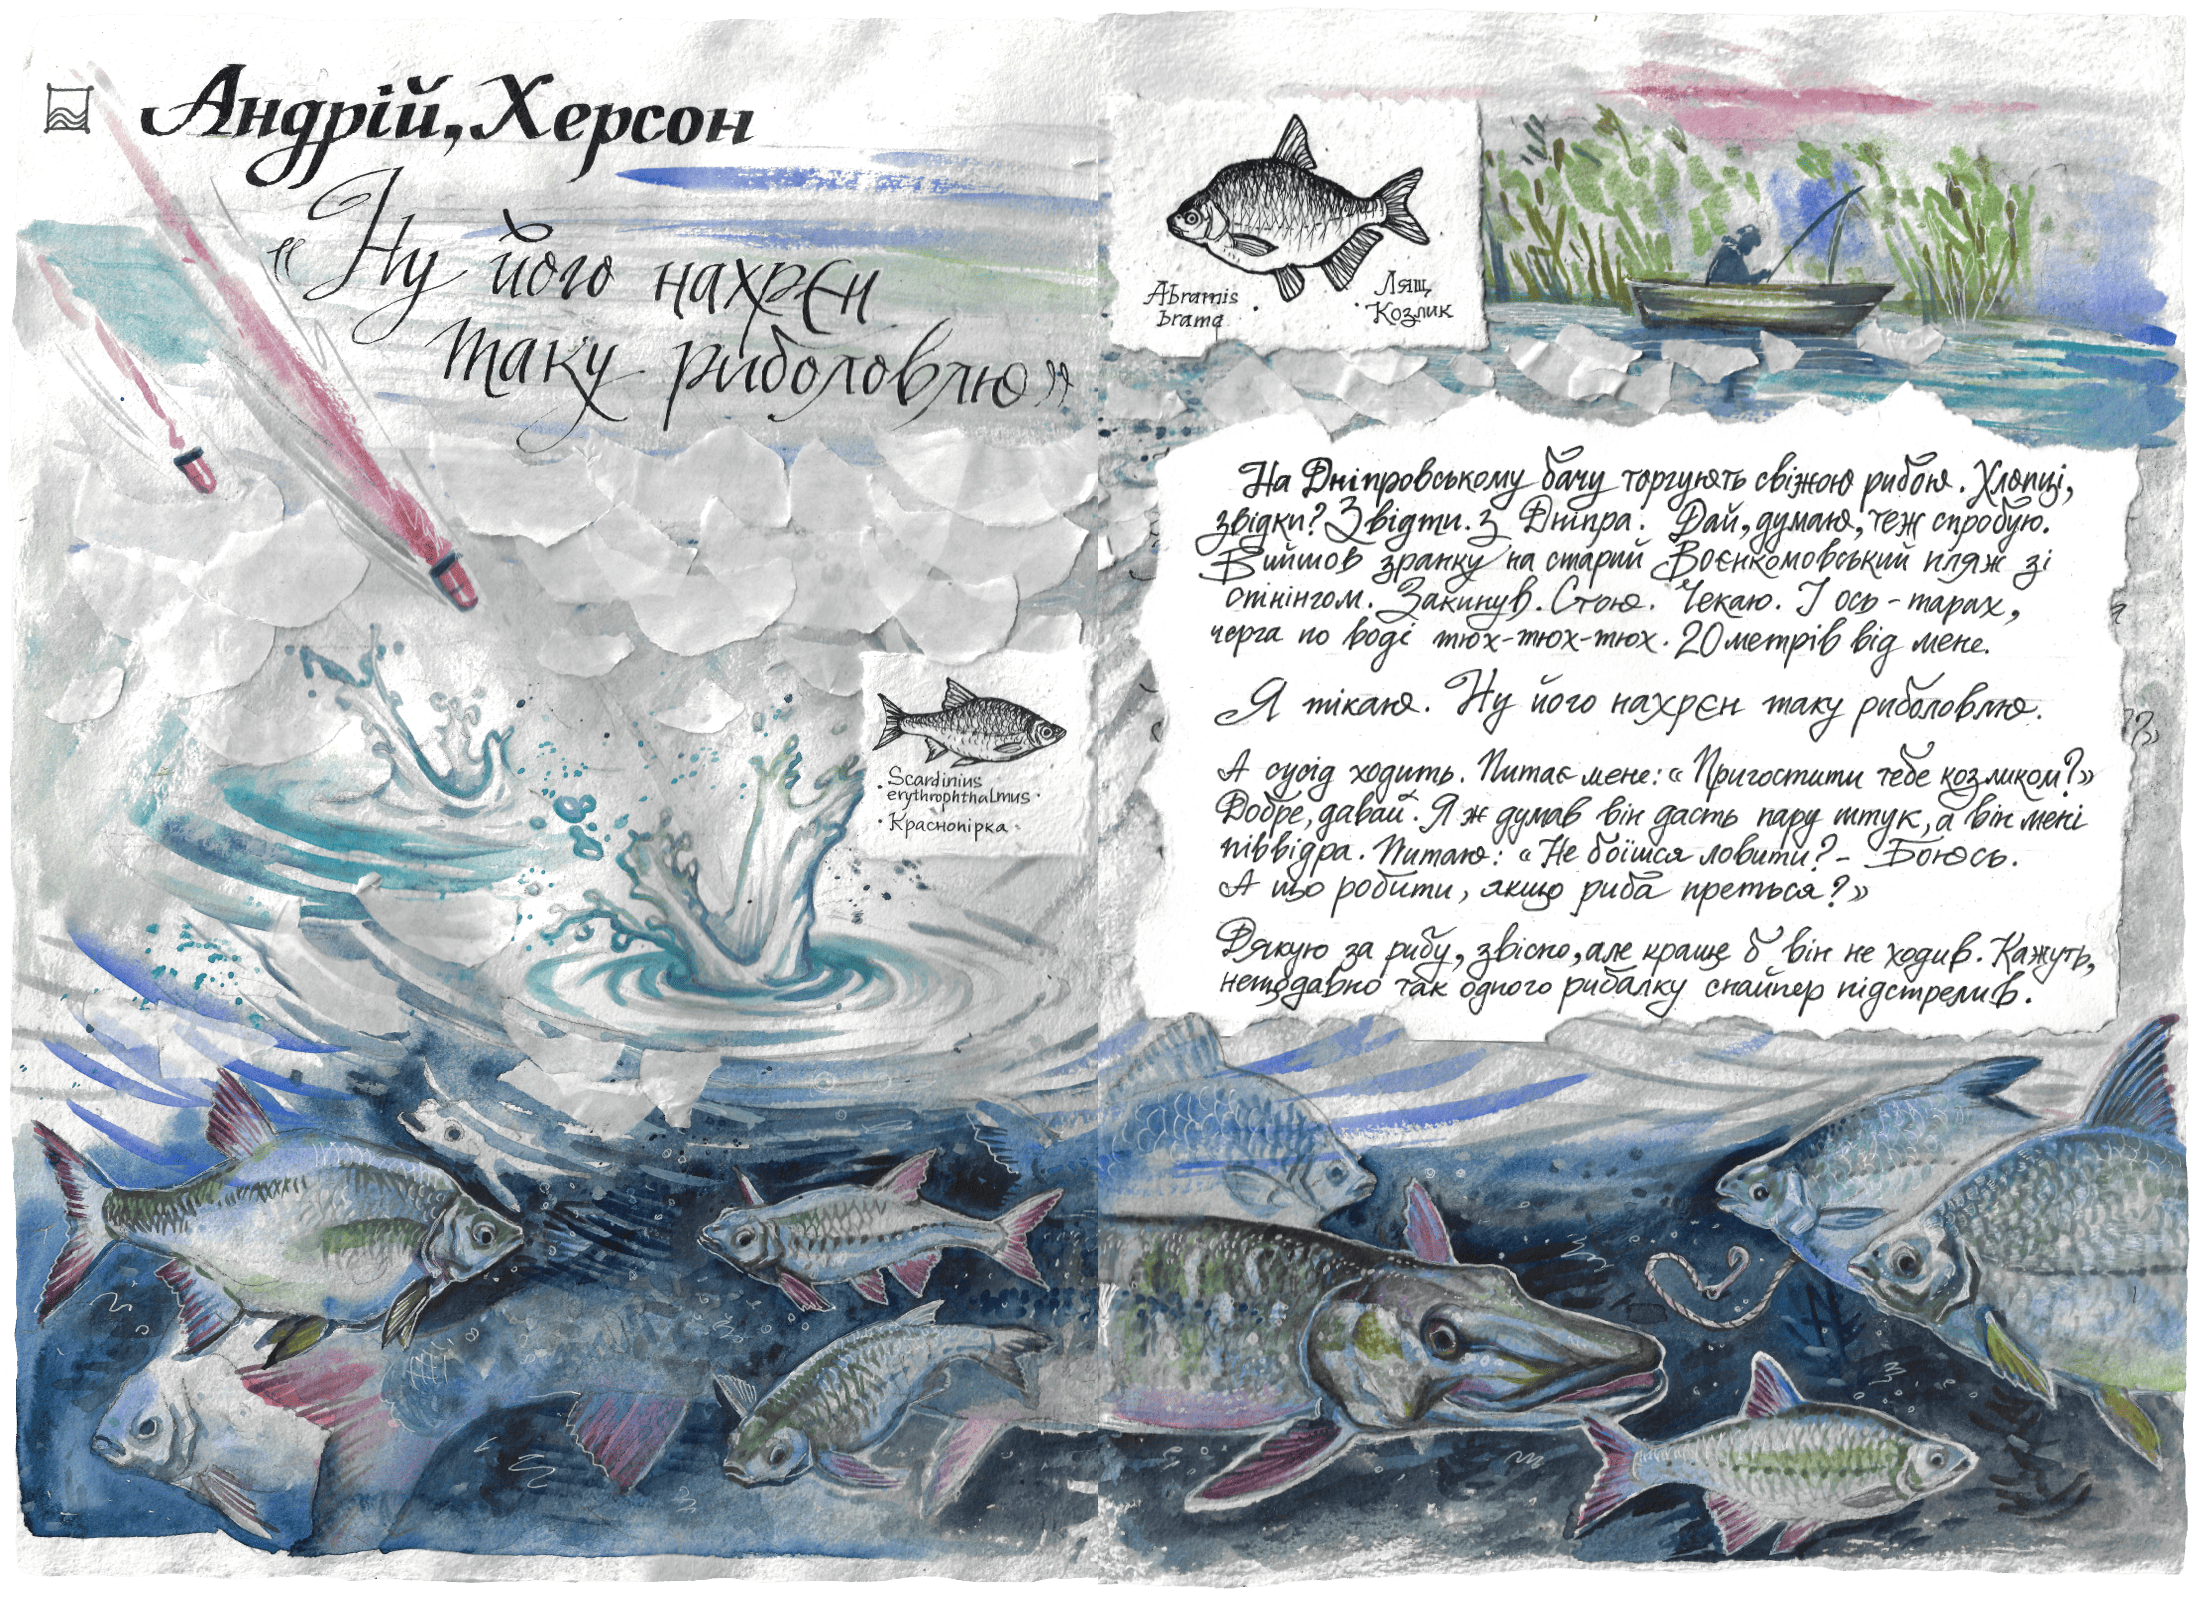 Андрій, Херсон
«Ну його нахрєн
таку риболовлю»
Scardinius
erythrophthalmus
Краснопірка
Abramis
brama
Лящ
Козлик
На Дніпровському бачу торгують свіжою рибою. Хлопці,
звідки? Звідти. З Дніпра. Дай, думаю, теж спробую.
Вийшов зранку на старий Воєнкомовський пляж зі
спінінгом. Закинув. Стою. Чекаю. І ось - тарах,
черга по воді тюх-тюх-тюх. 20 метрів від мене.
Я тікаю. Ну його нахрєн таку риболовлю.
А сусід ходить. Питає мене: «Пригостити тебе козликом?»
Добре, давай. Я ж думав він дасть пару штук, а він мені
піввідра. Питаю: «Не боїшся ловити? - Боюсь.
А що робити, якщо риба преться?»
Дякую за рибу, звісно, але краще б він не ходив. Кажуть,
нещодавно так одного рибалку снайпер підстрелив.